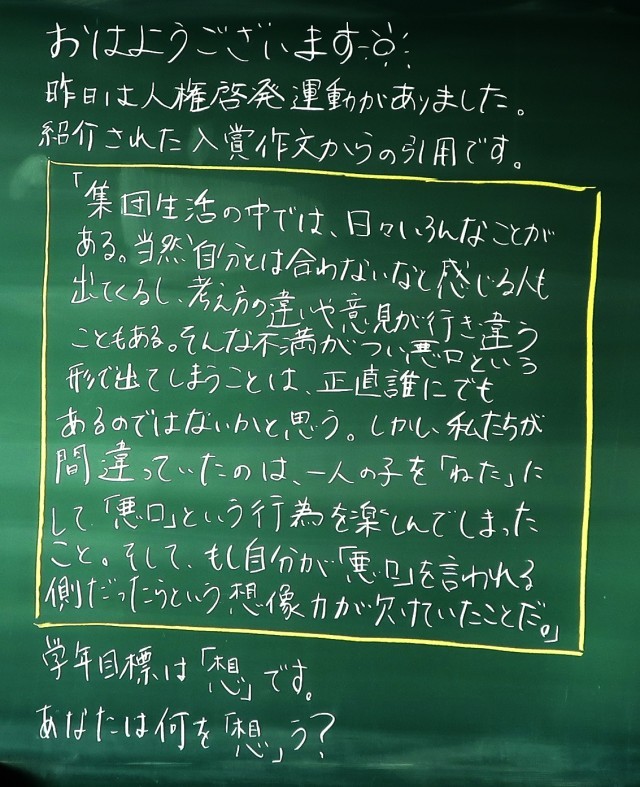 おはようございます
昨日は人権啓発運動がありました。
紹介された入賞作文からの引用です。
「集団生活の中では、日々いろんなことが
ある。当然自分とは合わないなと感じる人も
出てくるし、考え方の違いや意見が行き違う
こともある。そんな不満がつい悪口という
形で出てしまうことは、正直誰にでも
あるのではないかと思う。しかし、私たちが
間違っていたのは、一人の子を「ねた」に
して、「悪口」という行為を楽しんでしまった
こと。そして、もし自分が「悪口」を言われる
側だったらという想像力が欠けていたことだ。」
学年目標は「想」です。
あなたは何を「想」う?